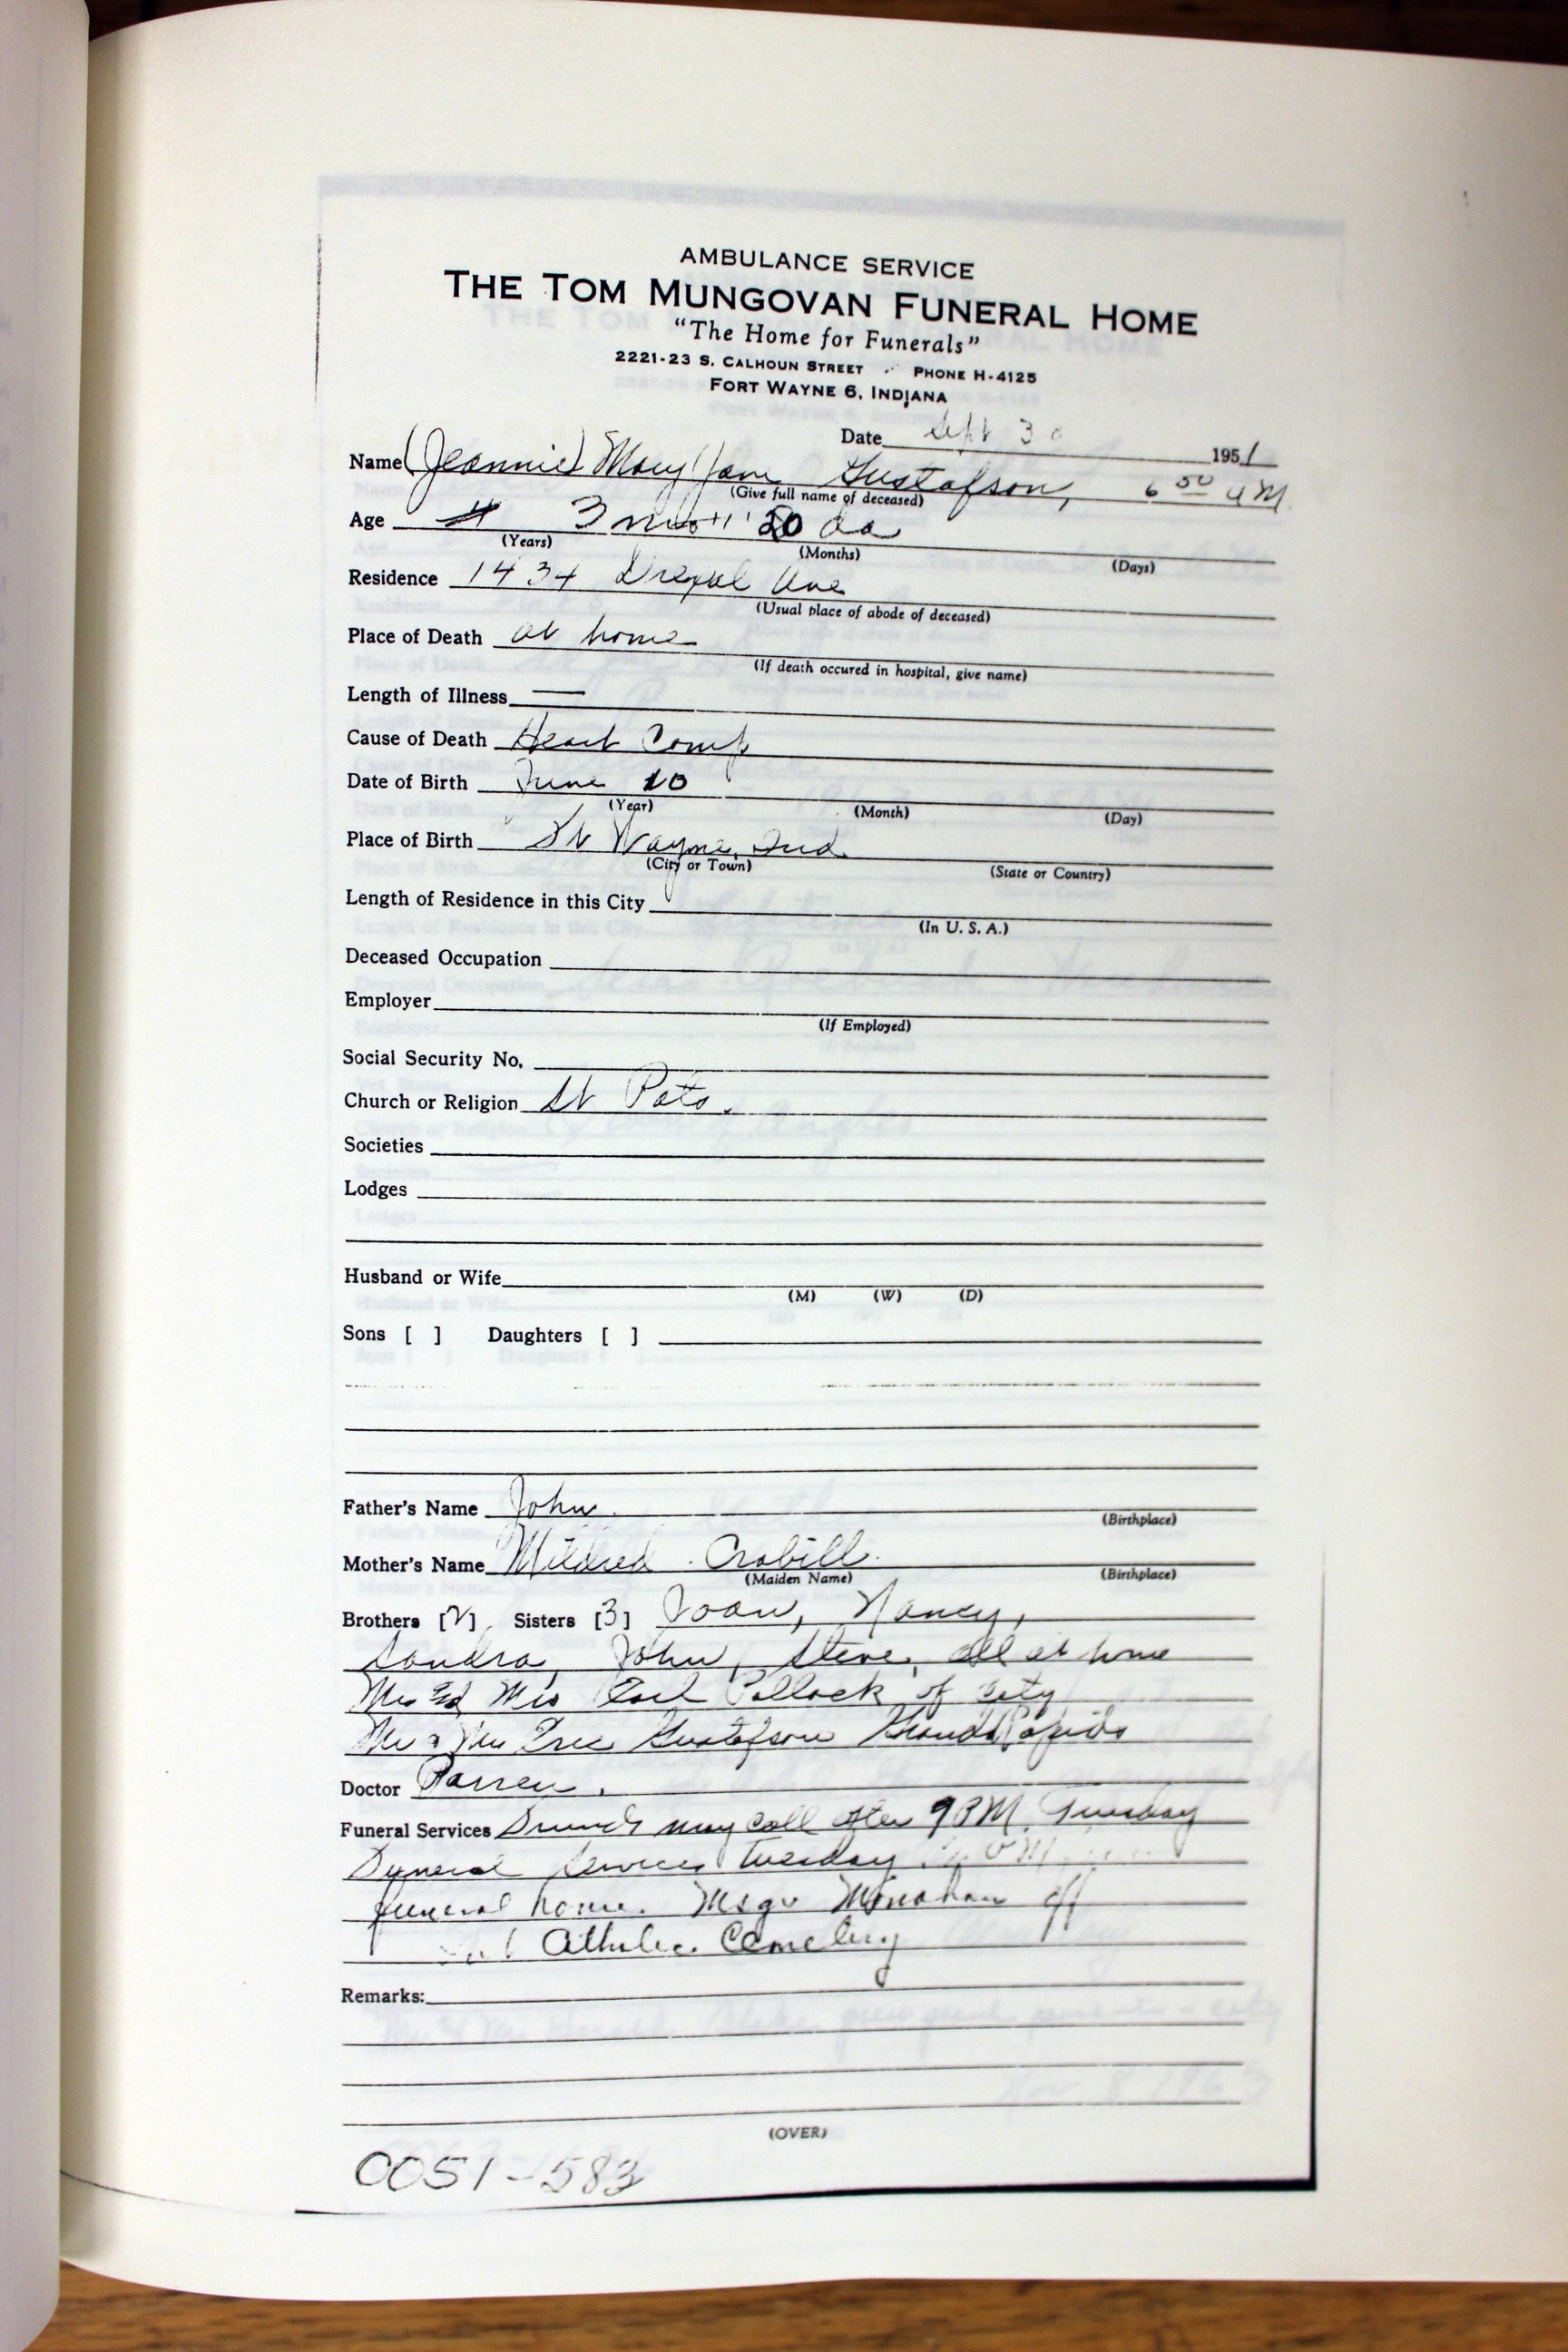 AMBULANCE SERVICE
THE TOM MUNGOVAN FUNERAL HOME
"The Home for Funerals"
2221-23 S. CALHOUN STREET · PHONE H-4125
FORT WAYNE 6, INDIANA
Date Sept 30 1951
Name (Jeannie) Mary Jane Gustafson, 6 50 AM
(Give full name of deceased)
Age 3 mos 20 da
(Years) (Months) (Days)
Residence 1434 Drexel Ave
(Usual place of abode of deceased)
Place of Death at home
(If death occured in hospital, give name)
Length of Illness —
Cause of Death Heart Comp
Date of Birth June 10
(Year) (Month) (Day)
Place of Birth Ft Wayne, Ind.
(City or Town) (State or Country)
Length of Residence in this City
(In U. S. A.)
Deceased Occupation
Employer
(If Employed)
Social Security No.
Church or Religion St Pats.
Societies
Lodges
Husband or Wife
(M) (W) (D)
Sons [ ] Daughters [ ]
Father's Name John
(Birthplace)
Mother's Name Mildred Crabill
(Maiden Name) (Birthplace)
Brothers [2] Sisters [3] Joan, Nancy,
Sandra, John, Steve, all at home
Mr & Mrs Pollock of City
Mr & Mrs Gustafson Grand Rapids
Doctor Parren.
Funeral Services Friends may call after PM Tuesday
Funeral Services Tuesday
funeral home. Msgr Monahan off
Catholic Cemetery
Remarks:
(OVER)
0051-583